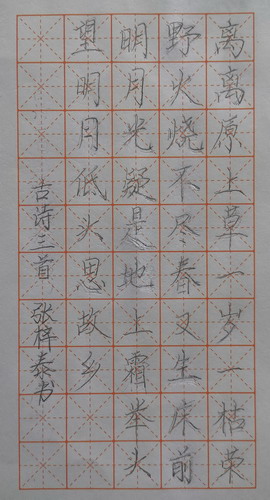 离离原上草一岁一枯荣
野火烧不尽春又生床前
明月光疑是地上霜举火
望明月低头思故乡
古诗三首 张梓泰书